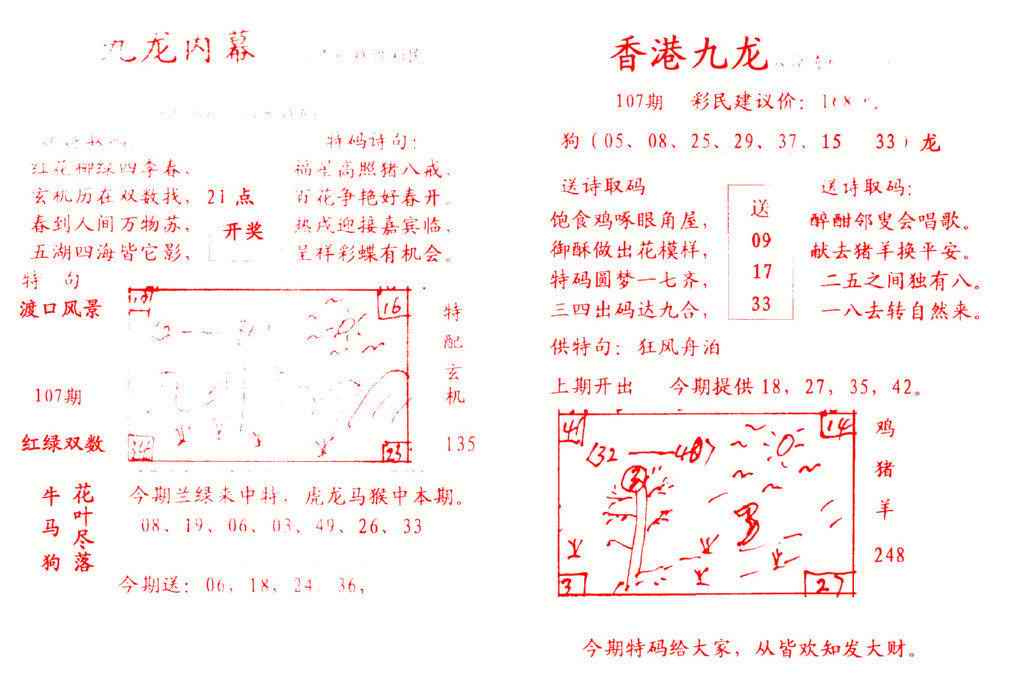 九龙内幕
红花柳绿四季春，
玄机历在双数找，
春到人间万物苏，
五湖四海皆它影，
21点
开奖
特码诗句：
福星高照猪八戒，
百花争艳好春开。
热戌迎接嘉宾临，
呈样彩蝶有机会。
特 句
渡口风景
107期
红绿双数
16
23
特配玄机
135
牛马狗
花叶尽落
今期兰绿来中特，虎龙马猴中本期。
08、19、06、03、49、26、33
今期送：06，18，24，36，
香港九龙
107期 彩民建议价：
狗（05、08、25、29、37、15 33）龙
送诗取码
饱食鸡啄眼角屋，
御酥做出花模样，
特码圆梦一七齐，
三四出码达九合，
送
09
17
33
送诗取码：
醉酣邻叟会唱歌。
献去猪羊换平安。
二五之间独有八。
一八去转自然来。
供特句：狂风舟泊
上期开出 今期提供18，27，35，42。
41
14
3
27
鸡猪羊
248
今期特码给大家，从皆欢知发大财。